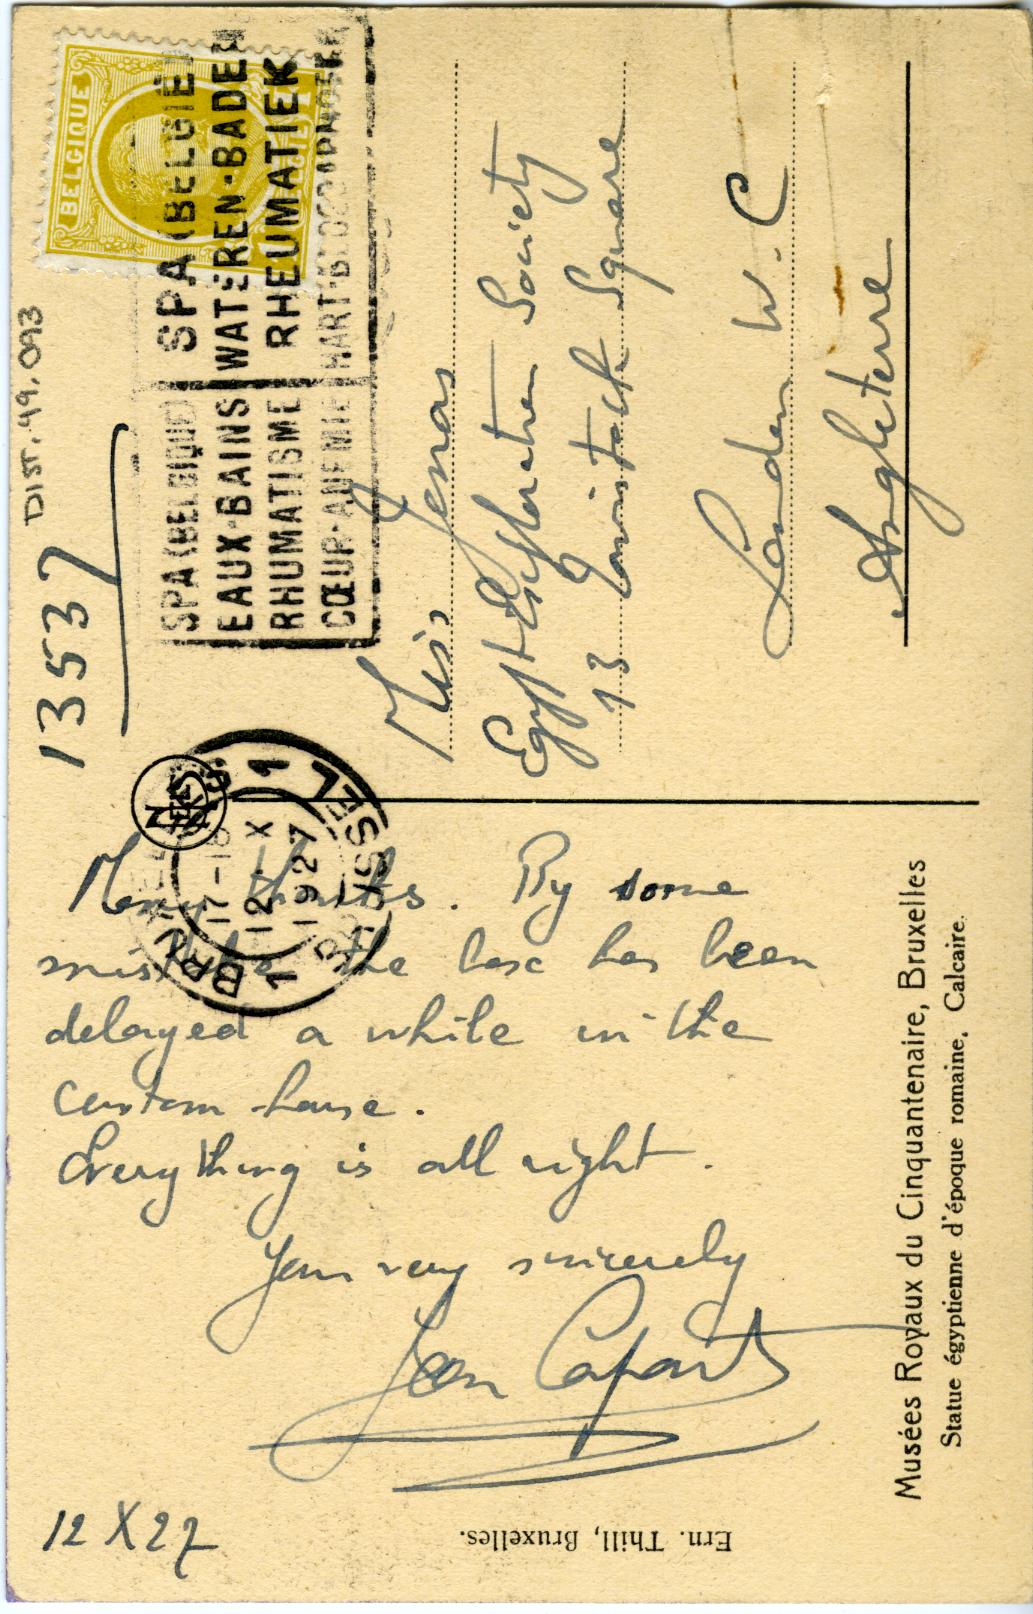 DIST. 49.093
13537
BELGIQUE
SPA (BELGIQUE) SPA (BELGIË)
EAUX-BAINS WATEREN-BADEN
RHUMATISME RHEUMATIEK
CŒUR-ANEMIE HART-BLOEDARMOEDE
1 BRUSSEL 1
17-18
12-X
1927
Miss Jonas
Egypt Exploration Society
13 Tavistock Square
London W.C
Angleterre
Many thanks. By some
mistake the box has been
delayed a while in the
custom-house.
Everything is all right.
Yours very sincerely
Jean Capart
12 X 27
Musées Royaux du Cinquantenaire, Bruxelles
Statue égyptienne d'époque romaine. Calcaire.
Ern. Thill, Bruxelles.